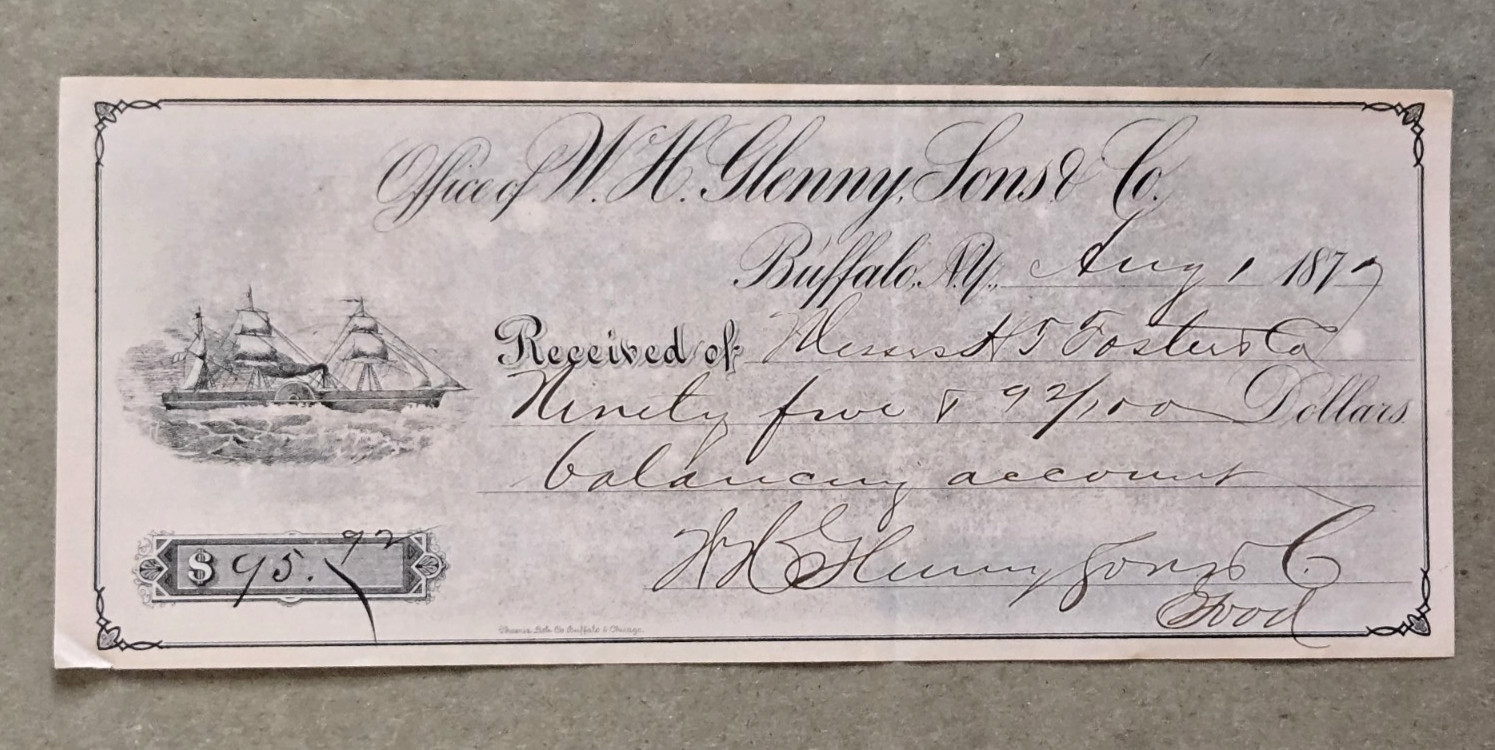 Office of W. H. Glenny, Sons & Co.
Buffalo, N.Y., Aug 1 1877
Received of Messrs H T Foster & Co
Ninety five & 92/100 Dollars
balancing account
W H Glenny Sons & Co
$ 95.92
Buffalo & Chicago.